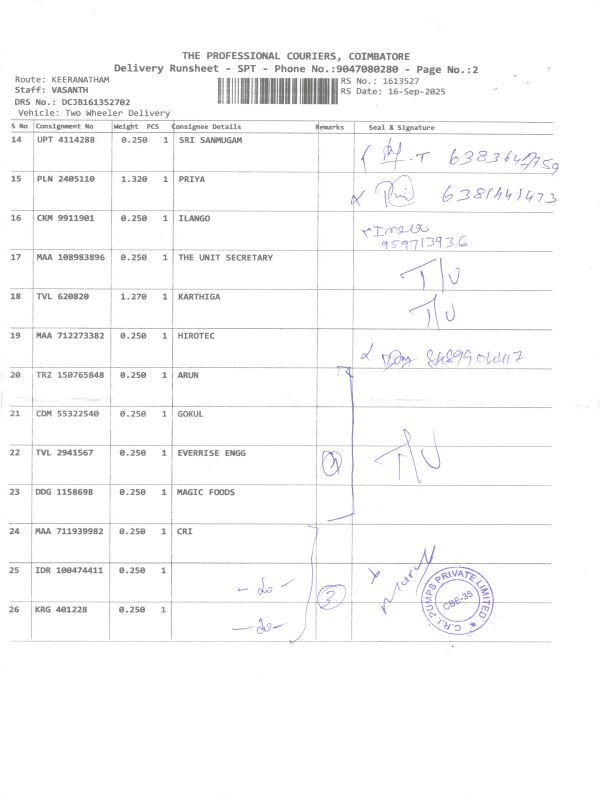 THE PROFESSIONAL COURIERS, COIMBATORE
Delivery Runsheet - SPT - Phone No.:9047080280 - Page No.:2
Route: KEERANATHAM
RS No.: 1613527
Staff: VASANTH
RS Date: 16-Sep-2025
DRS No.: DCJB161352702
Vehicle: Two Wheeler Delivery
S No Consignment No Weight PCS Consignee Details Remarks Seal & Signature
14 UPT 4114288 0.250 1 SRI SANMUGAM
15 PLN 2405110 1.320 1 PRIYA
16 CKM 9911901 0.250 1 ILANGO
959713936
17 MAA 108983896 0.250 1 THE UNIT SECRETARY T/U
18 TVL 620820 1.270 1 KARTHIGA T/U
19 MAA 712273382 0.250 1 HIROTEC
20 TRZ 150765848 0.250 1 ARUN
21 CDM 55322540 0.250 1 GOKUL
22 TVL 2941567 0.250 1 EVERRISE ENGG T/U
23 DDG 1158698 0.250 1 MAGIC FOODS
24 MAA 711939982 0.250 1 CRI
25 IDR 100474411 0.250 1
26 KRG 401228 0.250 1
3
C.R.I PUMPS PRIVATE LIMITED
CBE-35